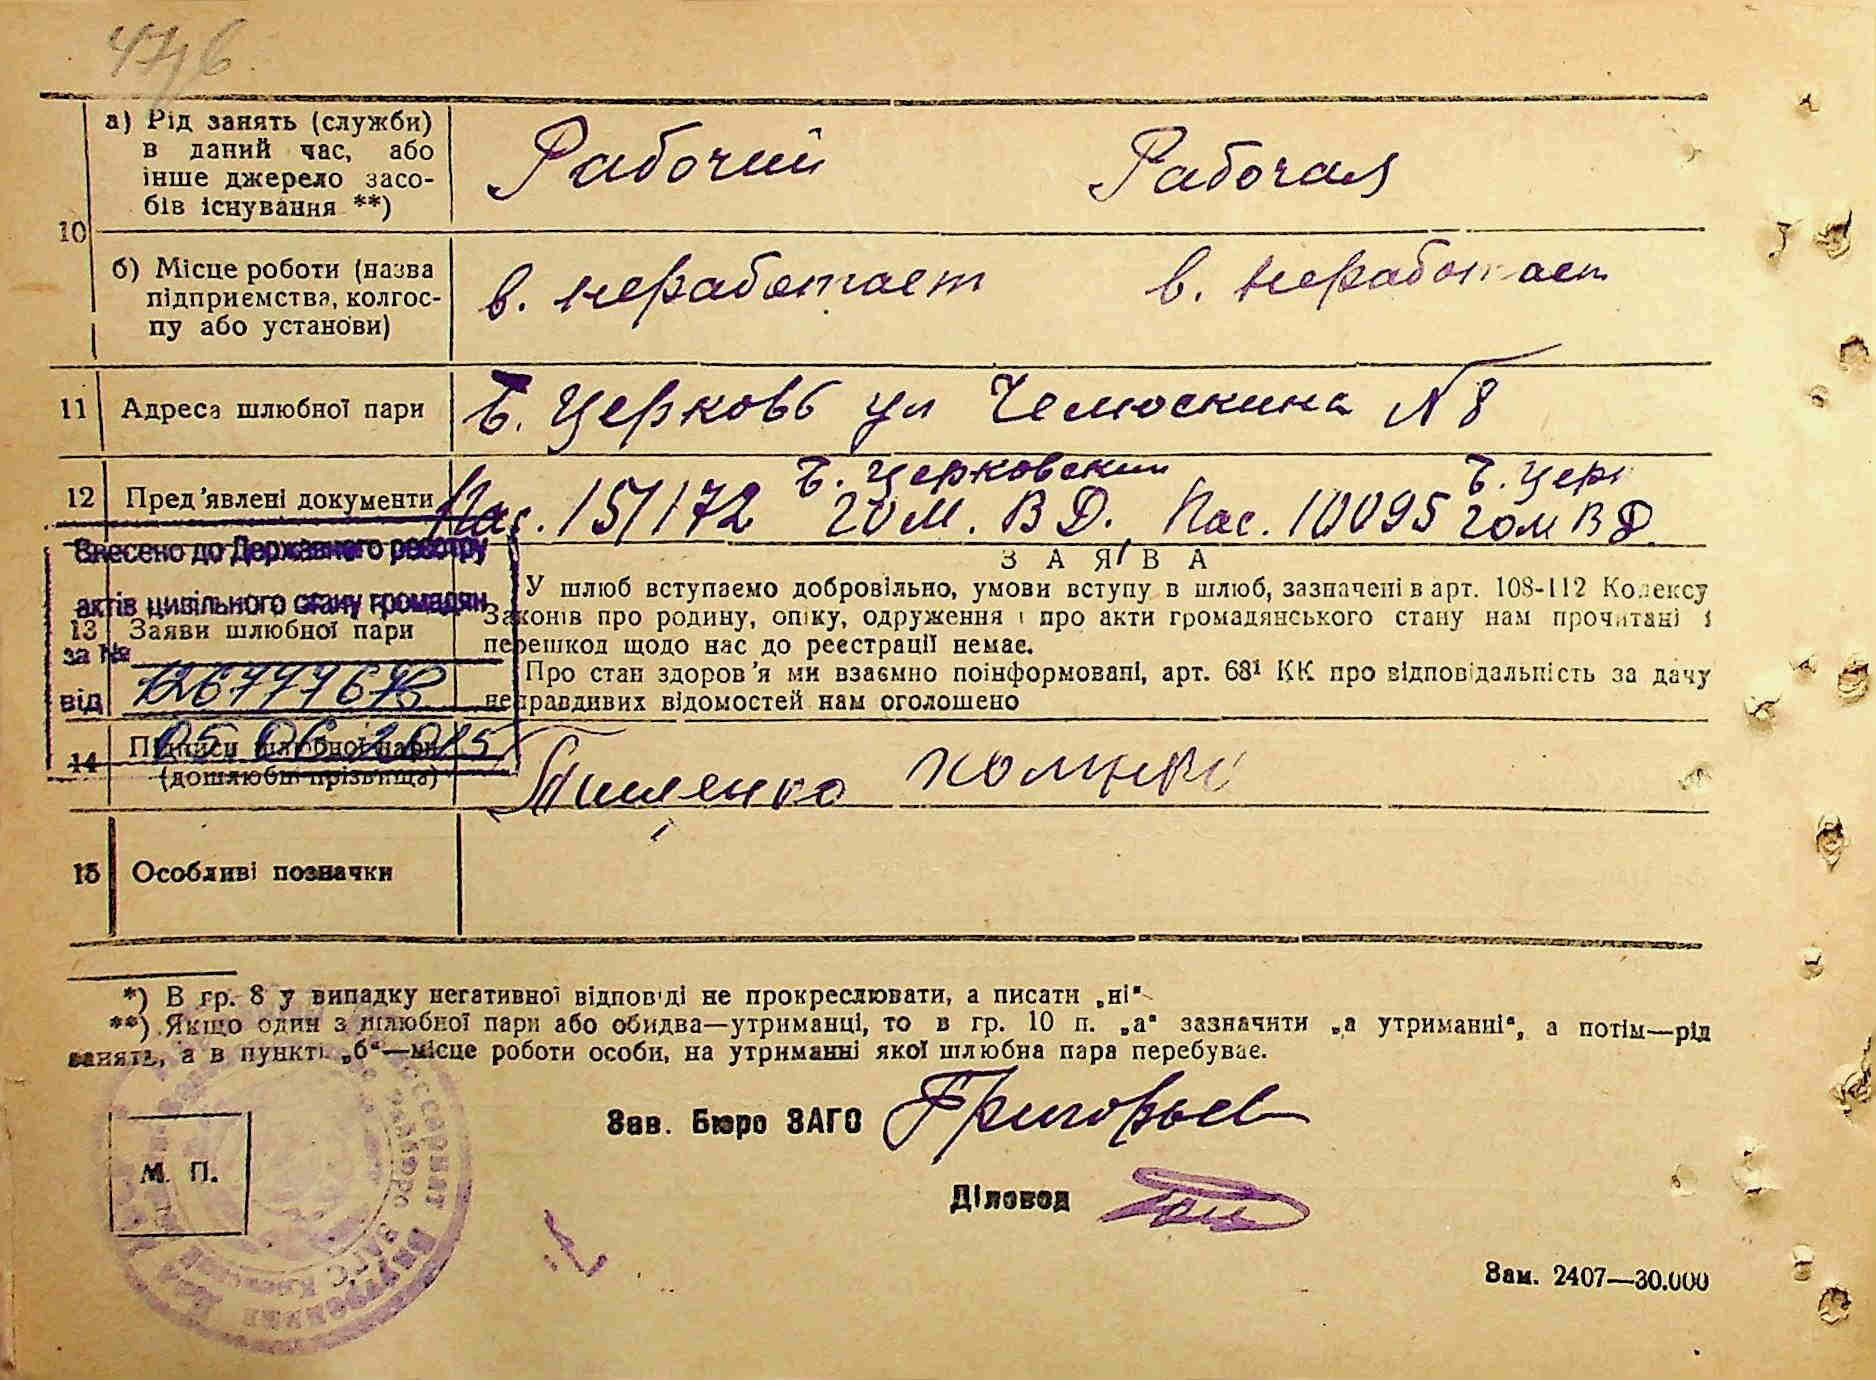 10
а) Рід занять (служби)
в даний час, або
інше джерело засо-
бів існування **)
Рабочий Рабочая
б) Місце роботи (назва
підприємства, колгос-
пу або установи)
в. неработает в. неработает
11 Адреса шлюбної пари
Б. Церковь ул Челюскина №8
12 Пред'явлені документи
Б. Церковский Б. Церк
Пас. 151172 ГОМ. ВД. Пас. 10095 ГОМ ВД
Внесено до Державного реєстру
актів цивільного стану громадян
за №
від
05 06 2015
13 Заяви шлюбної пари
ЗАЯВА
У шлюб вступаємо добровільно, умови вступу в шлюб, зазначені в арт. 108-112 Кодексу
Законів про родину, опіку, одруження і про акти громадянського стану нам прочитані і
перешкод щодо нас до реєстрації немає.
Про стан здоров'я ми взаємно поінформовані, арт. 68¹ КК про відповідальність за дачу
неправдивих відомостей нам оголошено
14 Підписи шлюбної пари
(дошлюбні прізвища)
15 Особливі позначки
*) В гр. 8 у випадку негативної відповіді не прокреслювати, а писати „ні“
**) Якщо один з шлюбної пари або обидва—утриманці, то в гр. 10 п. „а“ зазначити „а утриманні“, а потім—рід
занять, а в пункті „б“—місце роботи особи, на утриманні якої шлюбна пара перебуває.
Зав. Бюро ЗАГС Григорьев
М. П.
Діловод
Зам. 2407—30.000